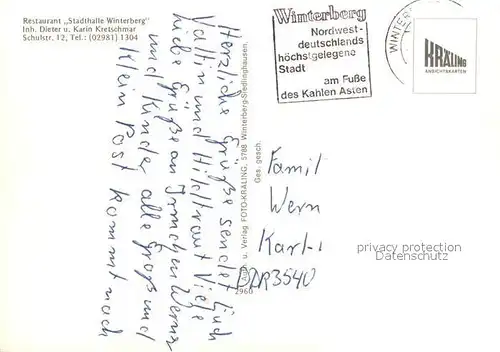 Restaurant „Stadthalle Winterberg"
Inh. Dieter u. Karin Kretschmar
Schulstr. 12, Tel.: (02981) 1304
Winterberg
Nordwest-
deutschlands
höchstgelegene
Stadt
am Fuße
des Kahlen Asten
WINTER
KRÄLING
ANSICHTSKARTEN
Herzliche Grüße sendet Euch
Valtin und Hildtraut Viele
liebe Grüße an Irmchen Werner
und Kinder alle Groß und
Klein Post kommt nach
Aufn. u. Verlag FOTO-KRÄLING, 5788 Winterberg-Siedlinghausen
Ges. gesch.
2960
Famil
Wern
Karl-
DDR 3540
privacy protection
Datenschutz